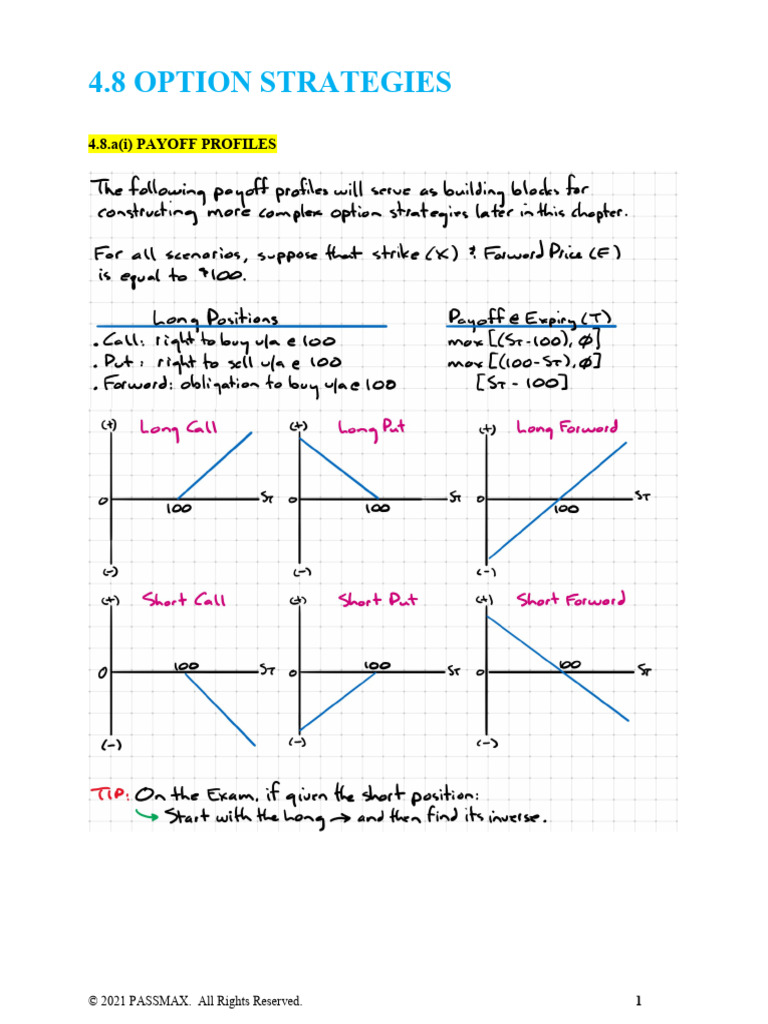 4.8 OPTION STRATEGIES
4.8.a(i) PAYOFF PROFILES
The following payoff profiles will serve as building blocks for
constructing more complex option strategies later in this chapter.
For all scenarios, suppose that strike (X) & Forward Price (F)
is equal to $100.
Long Positions
Payoff @ Expiry (T)
. Call: right to buy u/a @ 100
max [(ST-100), Ø]
. Put: right to sell u/a @ 100
max [(100-ST), Ø]
. Forward: obligation to buy u/a @ 100
[ST - 100]
(+) Long Call
(+) Long Put
(+) Long Forward
0 100 ST
0 100 ST
0 100 ST
(-)
(-)
(-)
(+) Short Call
(+) Short Put
(+) Short Forward
0 100 ST
0 100 ST
0 100 ST
(-)
(-)
(-)
TIP: On the Exam, if given the short position:
↳ Start with the Long → and then find its inverse.
© 2021 PASSMAX. All Rights Reserved.
1